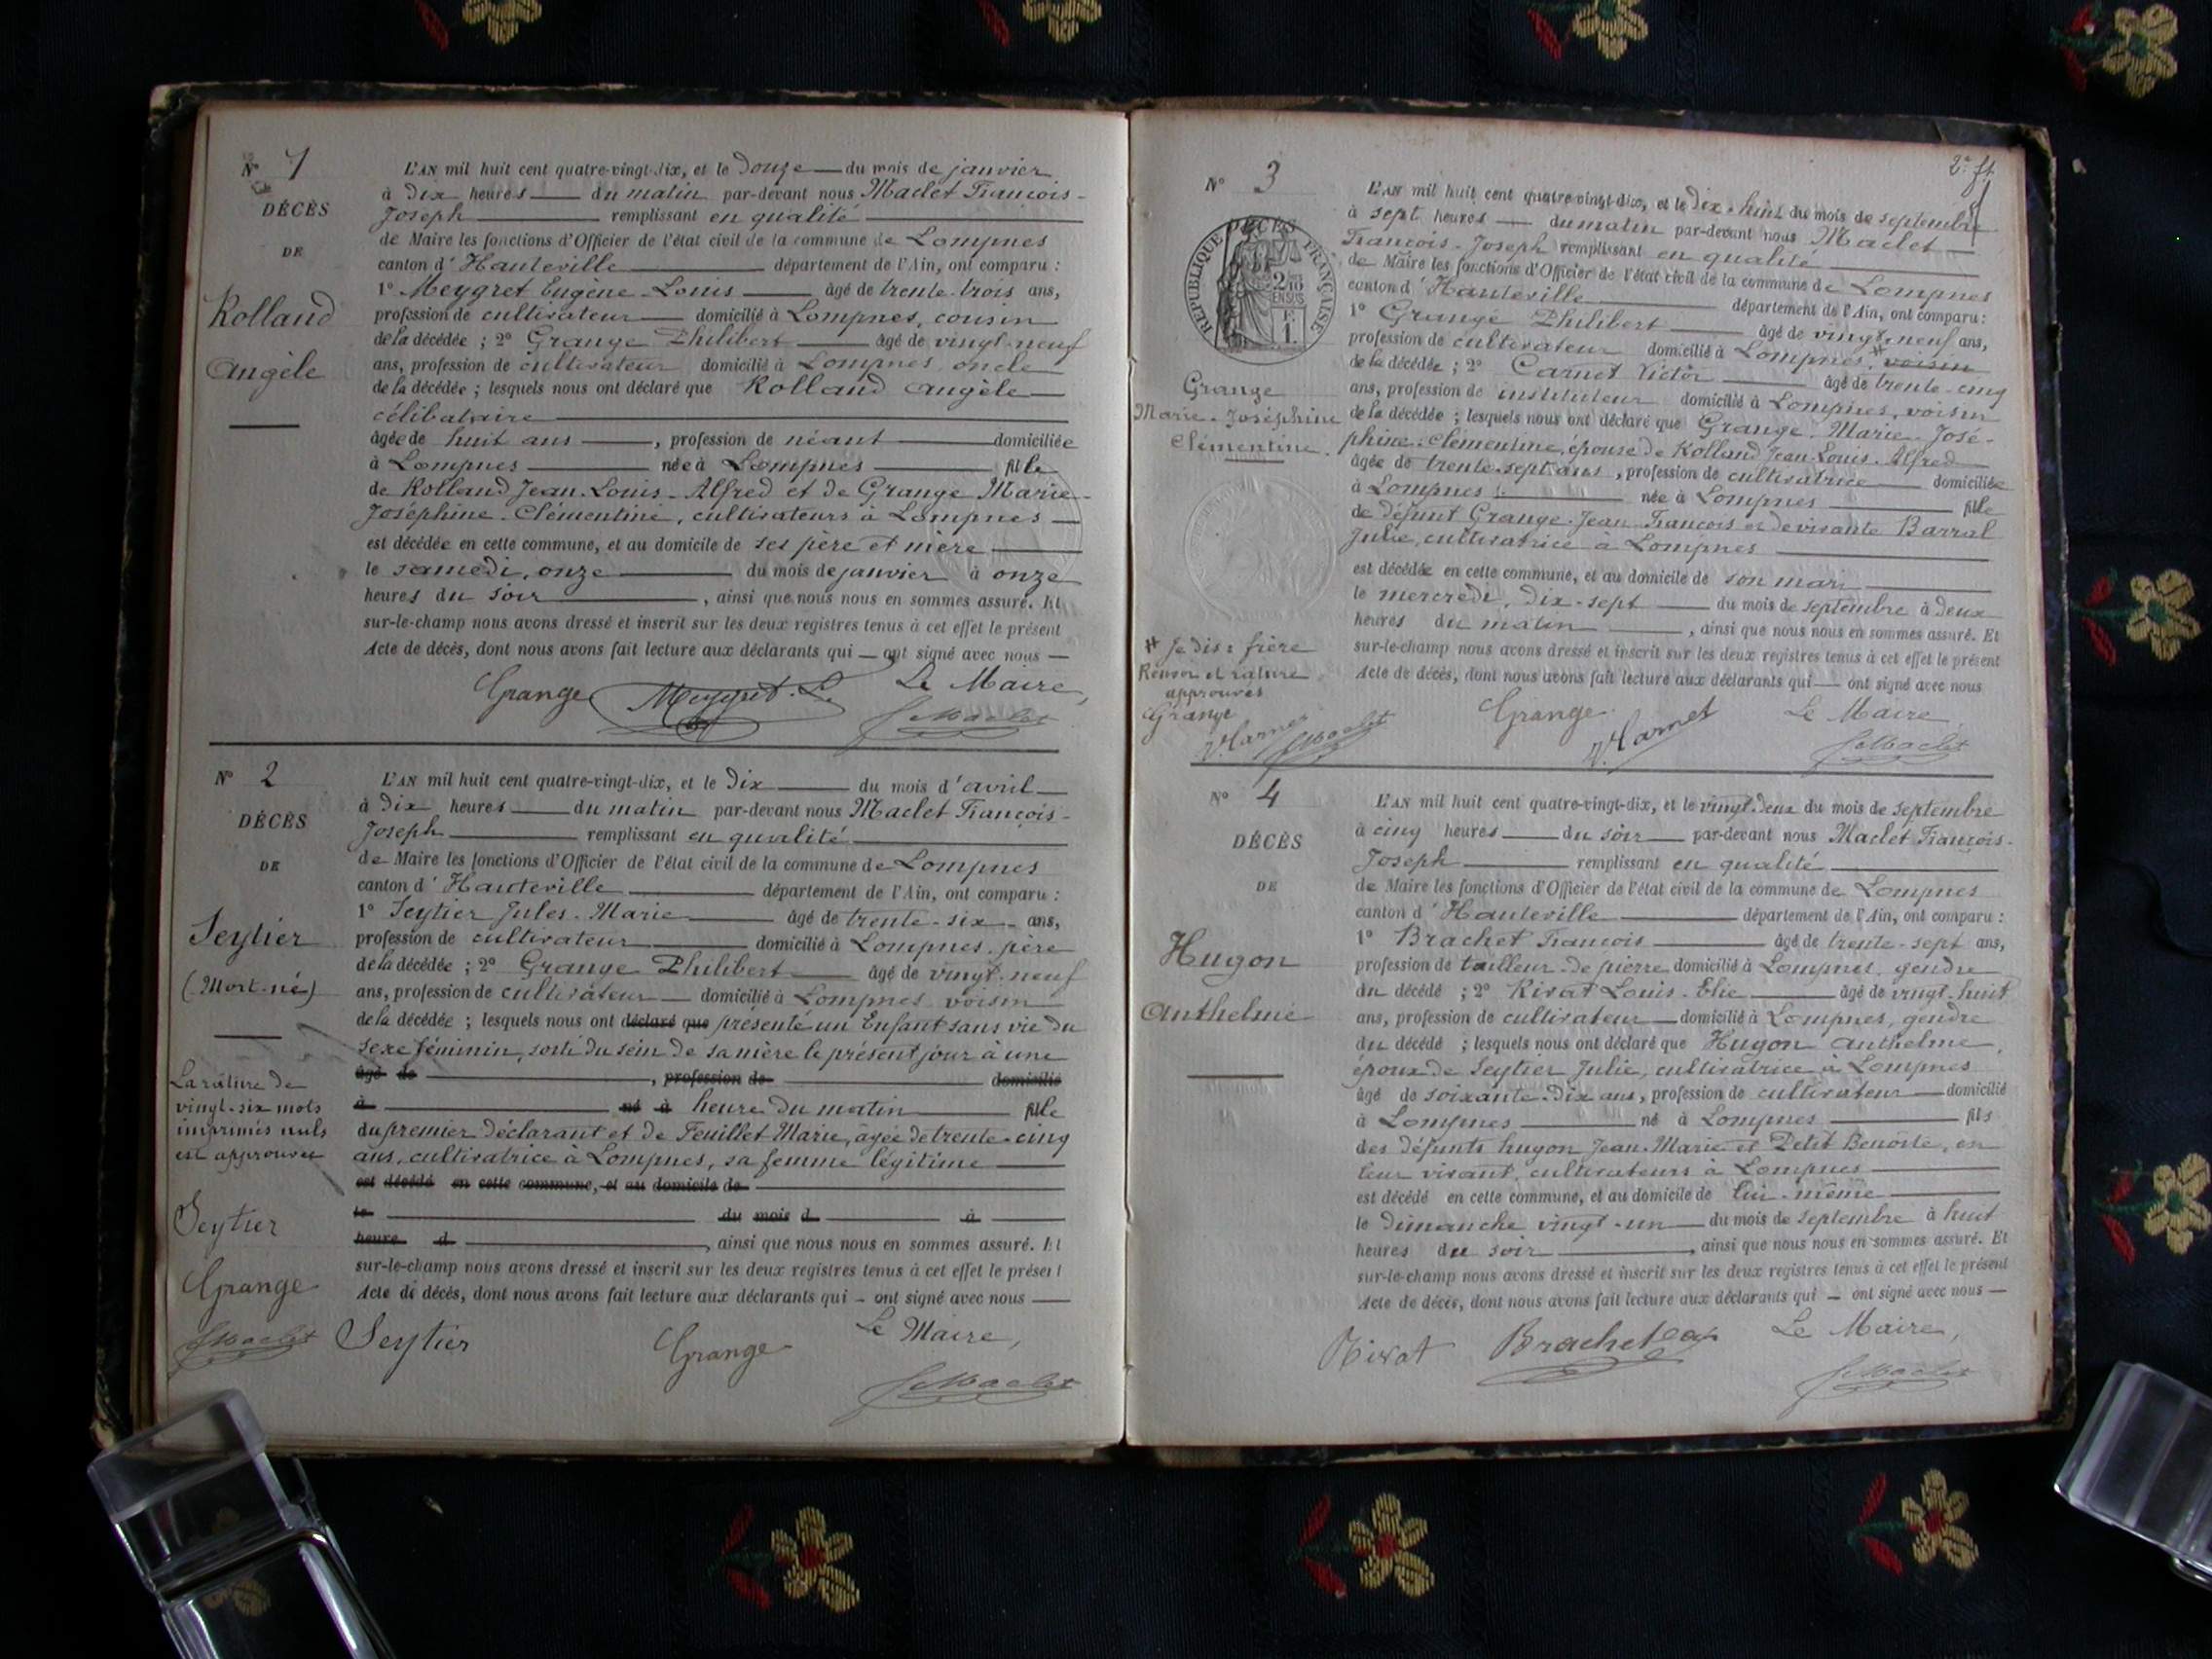 N° 1
DÉCÈS
DE
Rolland
Angèle
L'AN mil huit cent quatre-vingt-dix, et le douze du mois de janvier
à dix heures du matin par-devant nous Maclet François-
Joseph remplissant en qualité
de Maire les fonctions d'Officier de l'état civil de la commune de Lompnes
canton d'Hauteville département de l'Ain, ont comparu :
1° Meygret Eugène-Louis âgé de trente-trois ans,
profession de cultivateur domicilié à Lompnes, cousin
de la décédée ; 2° Grange Philibert âgé de vingt-neuf
ans, profession de cultivateur domicilié à Lompnes oncle
de la décédée ; lesquels nous ont déclaré que Rolland Angèle
célibataire
âgée de huit ans, profession de néant domiciliée
à Lompnes née à Lompnes fille
de Rolland Jean-Louis-Alfred et de Grange Marie-
Joséphine-Clémentine, cultivateurs à Lompnes
est décédée en cette commune, et au domicile de ses père et mère
le samedi, onze du mois de janvier à onze
heures du soir, ainsi que nous nous en sommes assuré. Et
sur-le-champ nous avons dressé et inscrit sur les deux registres tenus à cet effet le présent
Acte de décès, dont nous avons fait lecture aux déclarants qui ont signé avec nous
Grange Meygret. L. Le Maire,
f Maclet
N° 2
DÉCÈS
DE
Seytier
(Mort-né)
La rature de
vingt-six mots
imprimés nuls
est approuvée
Seytier
Grange
f Maclet
L'AN mil huit cent quatre-vingt-dix, et le dix du mois d'avril
à dix heures du matin par-devant nous Maclet François-
Joseph remplissant en qualité
de Maire les fonctions d'Officier de l'état civil de la commune de Lompnes
canton d'Hauteville département de l'Ain, ont comparu :
1° Seytier Jules-Marie âgé de trente-six ans,
profession de cultivateur domicilié à Lompnes, père
de la décédée ; 2° Grange Philibert âgé de vingt-neuf
ans, profession de cultivateur domicilié à Lompnes voisin
de la décédée ; lesquels nous ont déclaré que présenté un Enfant sans vie du
sexe féminin, sorti du sein de sa mère le présent jour à une
âgé de, profession de domicilié
à né à heure du matin fille
du premier déclarant et de Feuillet Marie, âgée de trente-cinq
ans, cultivatrice à Lompnes, sa femme légitime
est décédé en cette commune, et au domicile de
le du mois d à
heure d, ainsi que nous nous en sommes assuré. Et
sur-le-champ nous avons dressé et inscrit sur les deux registres tenus à cet effet le présent
Acte de décès, dont nous avons fait lecture aux déclarants qui ont signé avec nous
Seytier Grange Le Maire,
f Maclet
2e ft
N° 3
DÉCÈS
RÉPUBLIQUE FRANÇAISE
2/10 EN SUS
Grange
Marie-Joséphine
Clémentine.
# Je dis : frère
Renvoi et rature
approuvés
Grange
V. Carnet f Maclet
L'AN mil huit cent quatre-vingt-dix, et le dix-huit du mois de septembre
à sept heures du matin par-devant nous Maclet
François-Joseph remplissant en qualité
de Maire les fonctions d'Officier de l'état civil de la commune de Lompnes
canton d'Hauteville département de l'Ain, ont comparu :
1° Grange Philibert âgé de vingt-neuf ans,
profession de cultivateur domicilié à Lompnes, # voisin
de la décédée ; 2° Carnet Victor âgé de trente-cinq
ans, profession de instituteur domicilié à Lompnes, voisin
de la décédée ; lesquels nous ont déclaré que Grange Marie-José-
phine-Clémentine, épouse de Rolland Jean-Louis-Alfred
âgée de trente-sept ans, profession de cultivatrice domiciliée
à Lompnes née à Lompnes fille
de défunt Grange Jean-François et de vivante Barral
Julie, cultivatrice à Lompnes
est décédée en cette commune, et au domicile de son mari
le mercredi, dix-sept du mois de septembre à deux
heures du matin, ainsi que nous nous en sommes assuré. Et
sur-le-champ nous avons dressé et inscrit sur les deux registres tenus à cet effet le présent
Acte de décès, dont nous avons fait lecture aux déclarants qui ont signé avec nous
Grange V. Carnet Le Maire,
f Maclet
N° 4
DÉCÈS
DE
Hugon
Anthelme
L'AN mil huit cent quatre-vingt-dix, et le vingt-deux du mois de septembre
à cinq heures du soir par-devant nous Maclet François-
Joseph remplissant en qualité
de Maire les fonctions d'Officier de l'état civil de la commune de Lompnes
canton d'Hauteville département de l'Ain, ont comparu :
1° Brachet François âgé de trente-sept ans,
profession de tailleur de pierre domicilié à Lompnes, gendre
du décédé ; 2° Rivat Louis-Elie âgé de vingt-huit
ans, profession de cultivateur domicilié à Lompnes, gendre
du décédé ; lesquels nous ont déclaré que Hugon Anthelme,
époux de Seytier Julie, cultivatrice à Lompnes
âgé de soixante-dix ans, profession de cultivateur domicilié
à Lompnes né à Lompnes fils
des défunts hugon Jean-Marie et Petit Benoîte, en
leur vivant, cultivateurs à Lompnes
est décédé en cette commune, et au domicile de lui-même
le dimanche vingt-un du mois de septembre à huit
heures du soir, ainsi que nous nous en sommes assuré. Et
sur-le-champ nous avons dressé et inscrit sur les deux registres tenus à cet effet le présent
Acte de décès, dont nous avons fait lecture aux déclarants qui ont signé avec nous
Rivat Brachet Le Maire,
f Maclet